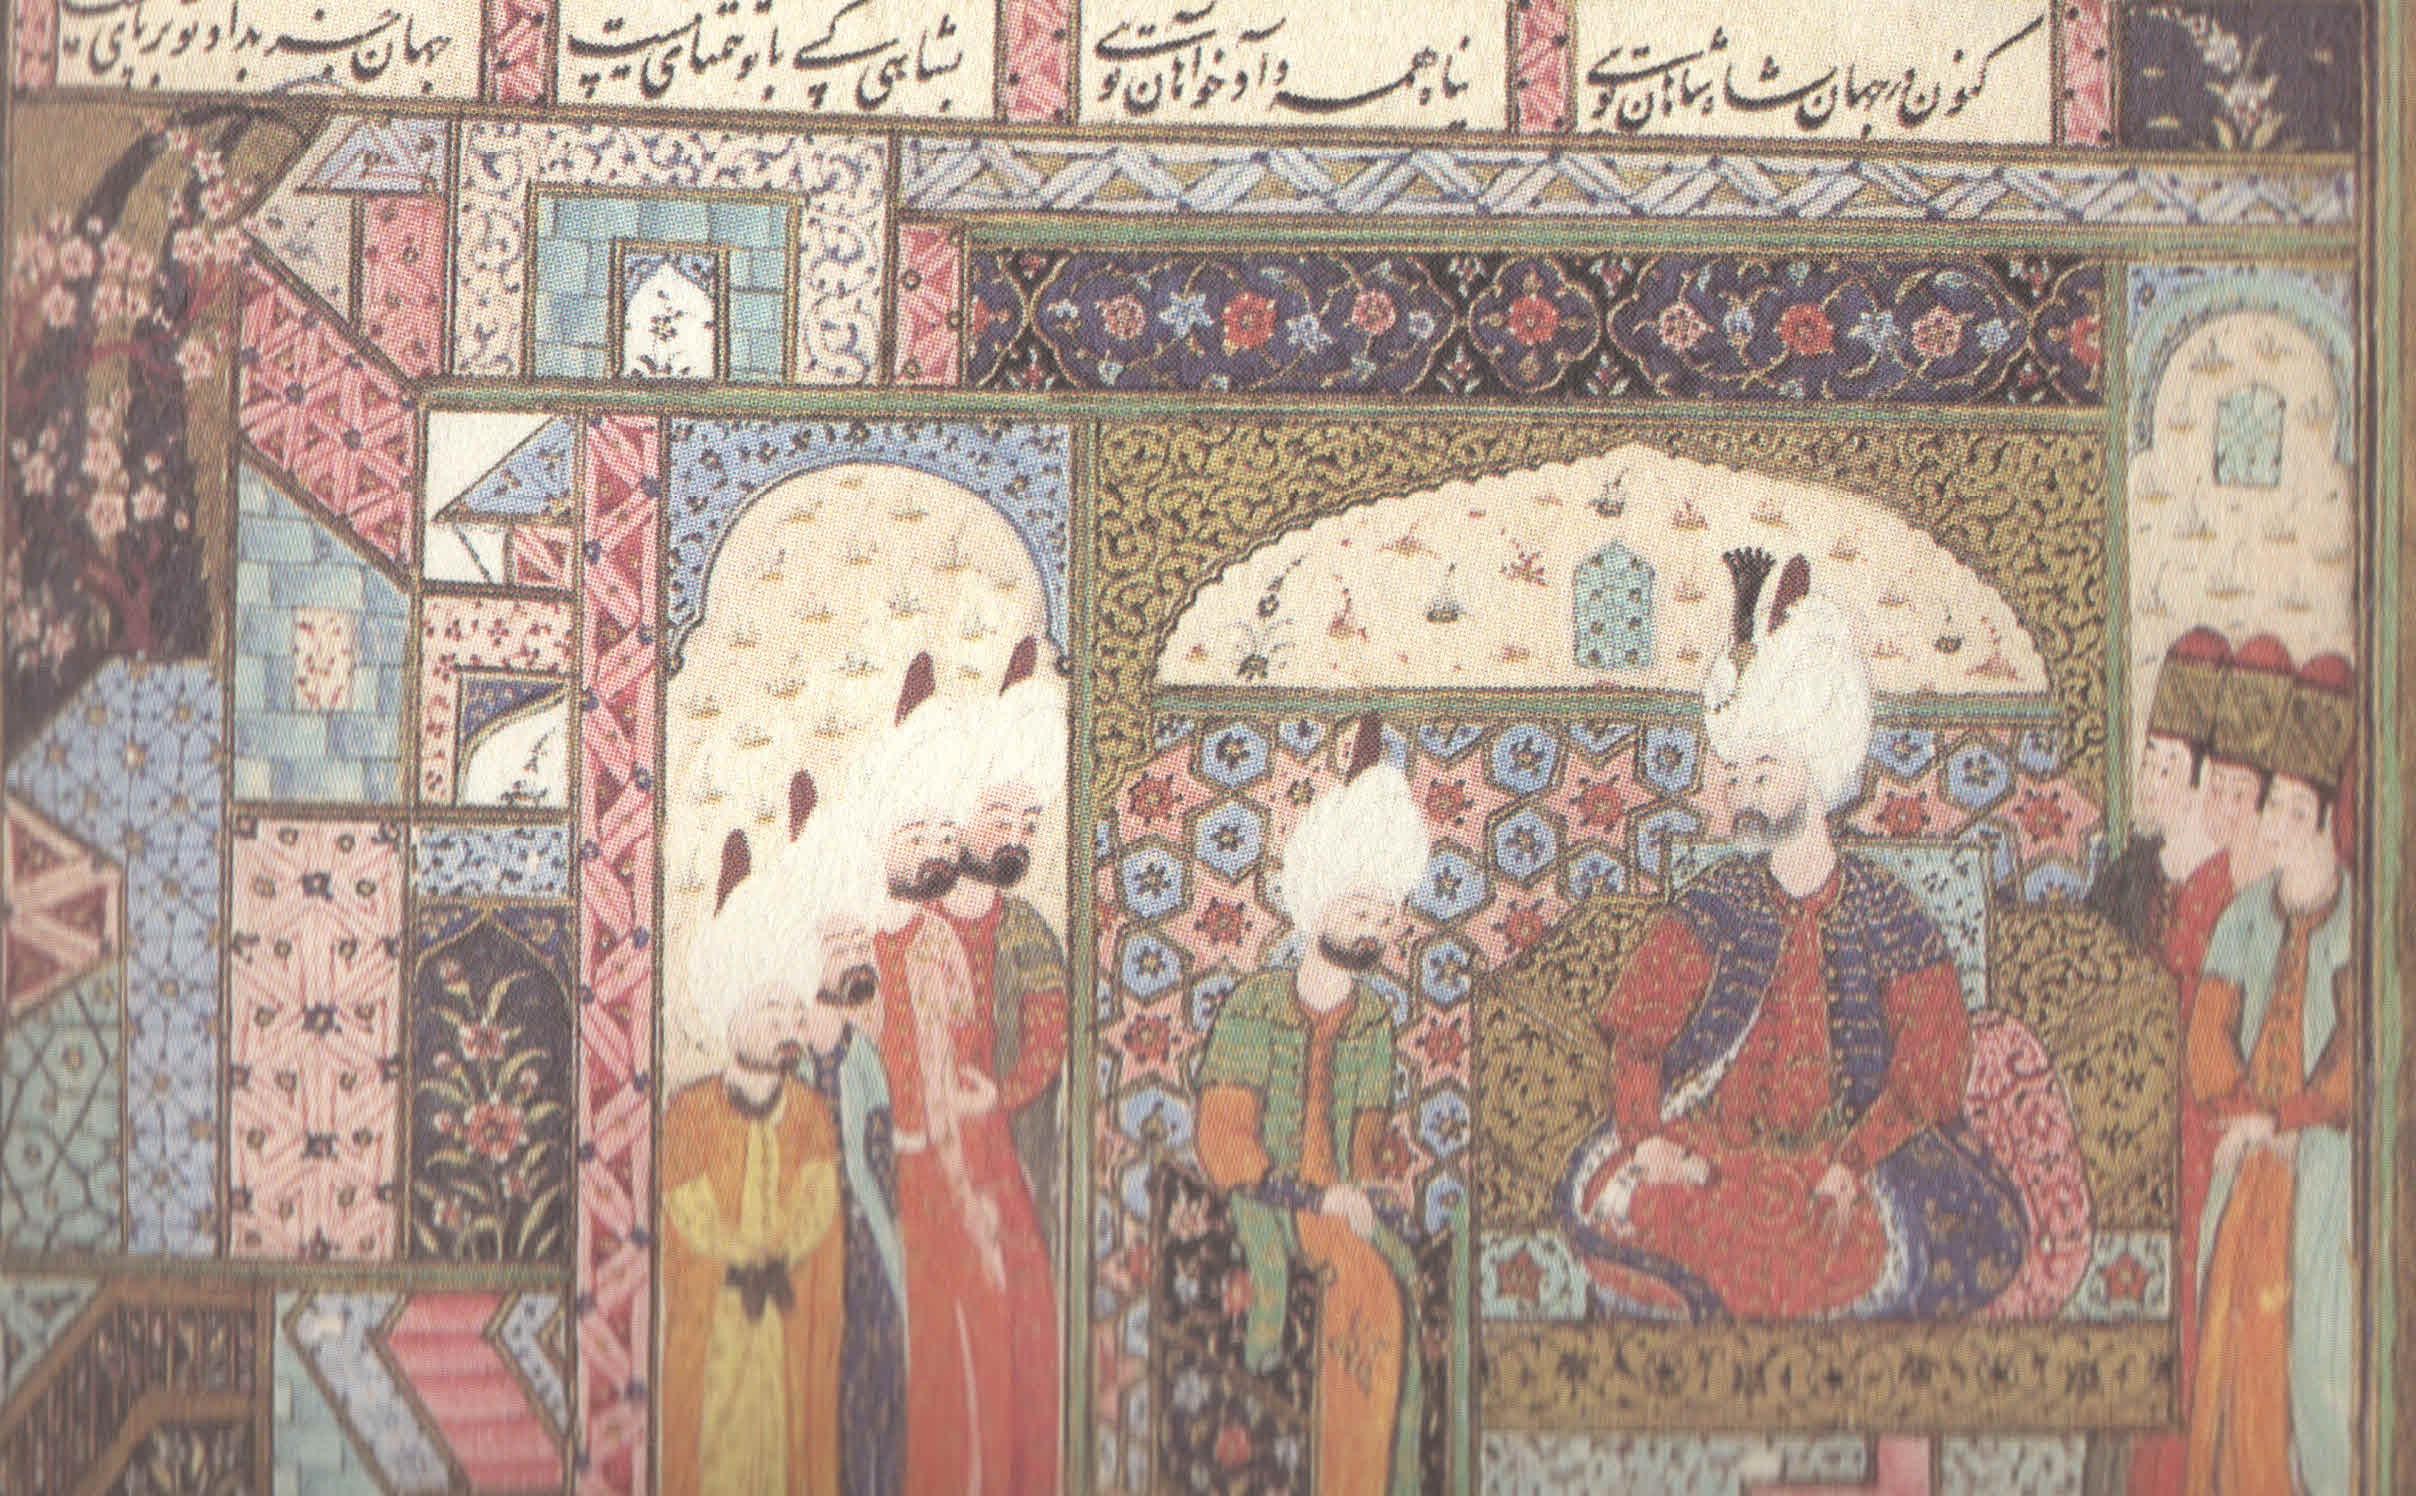 کنون در جهان شاه شاهان تویی پناه همه دادخواهان تویی بشاهی کسی با تو همتای نیست جهان جز بداد تو بر پای نیست